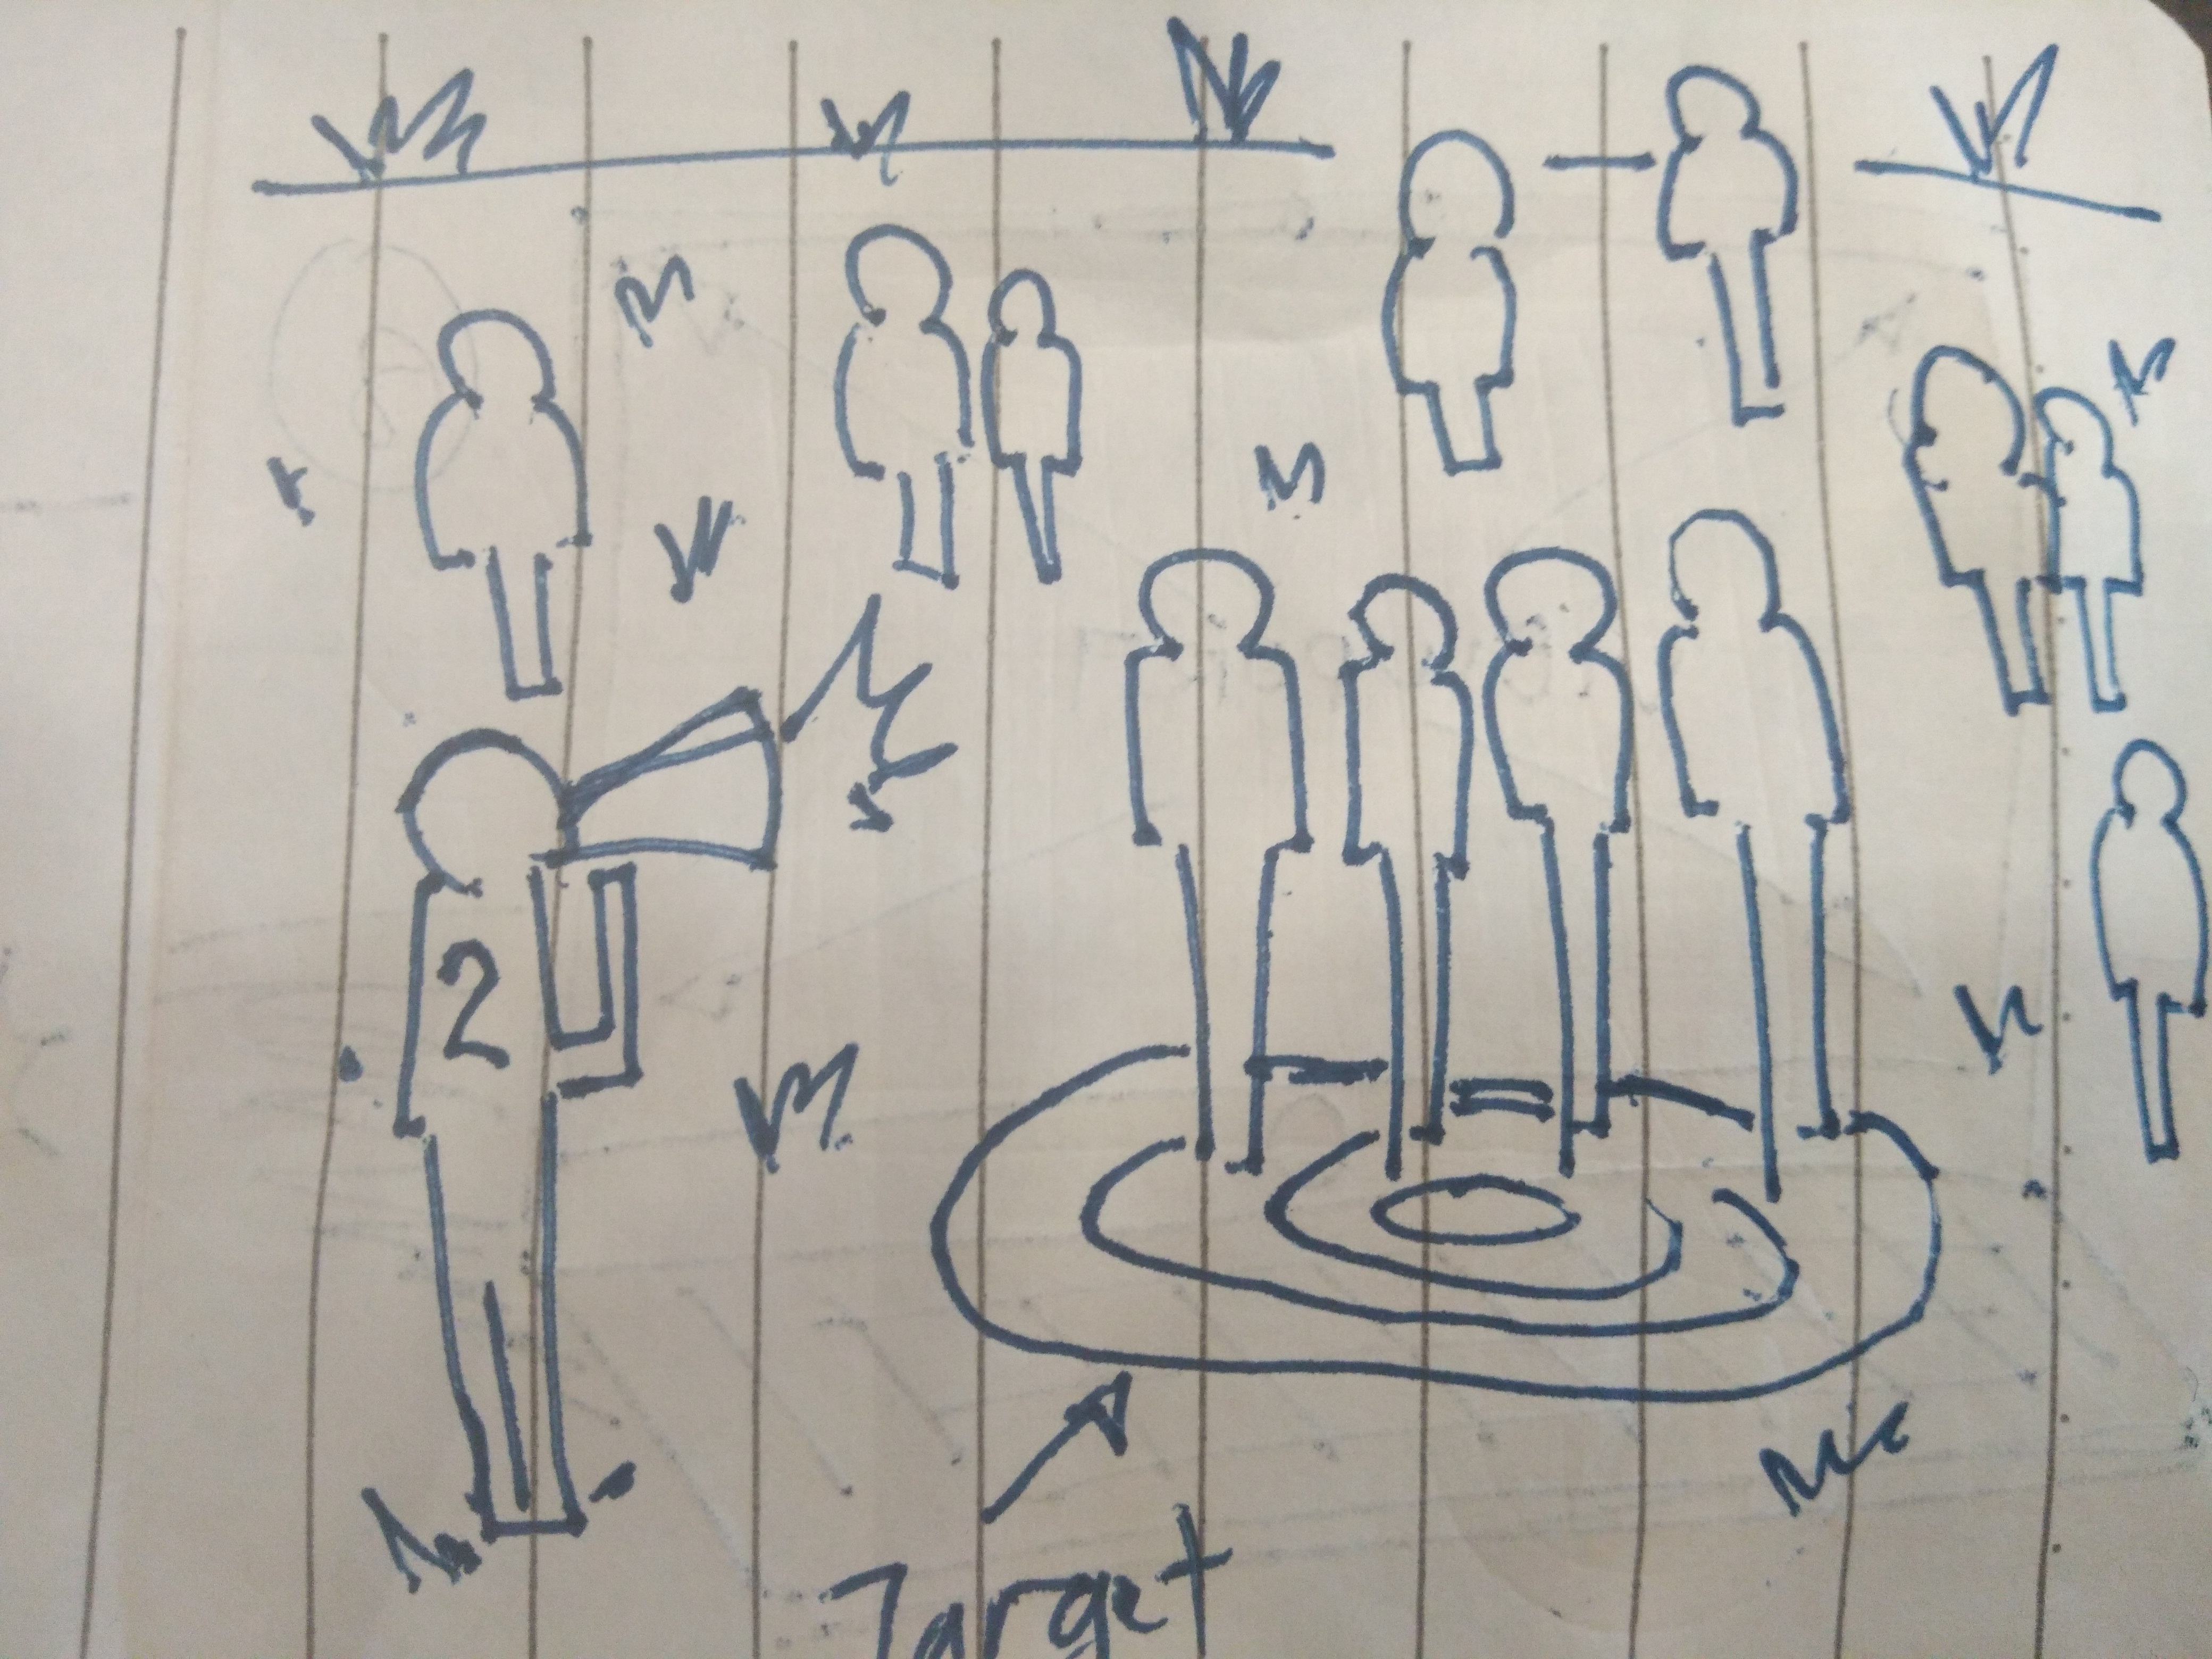 2
Target